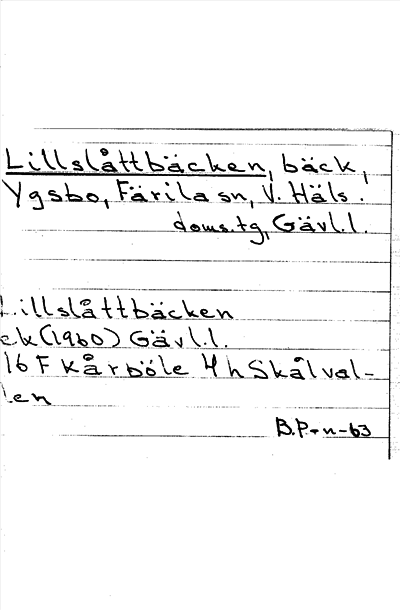 Lillslåttbäcken, bäck,
Ygsbo, Färila sn, V. Häls.
doms.tg, Gävl.l.
Lillslåttbäcken
ek (1960) Gävl.l.
16 F Kårböle 4 h Skålval-
len
B.P-n-63